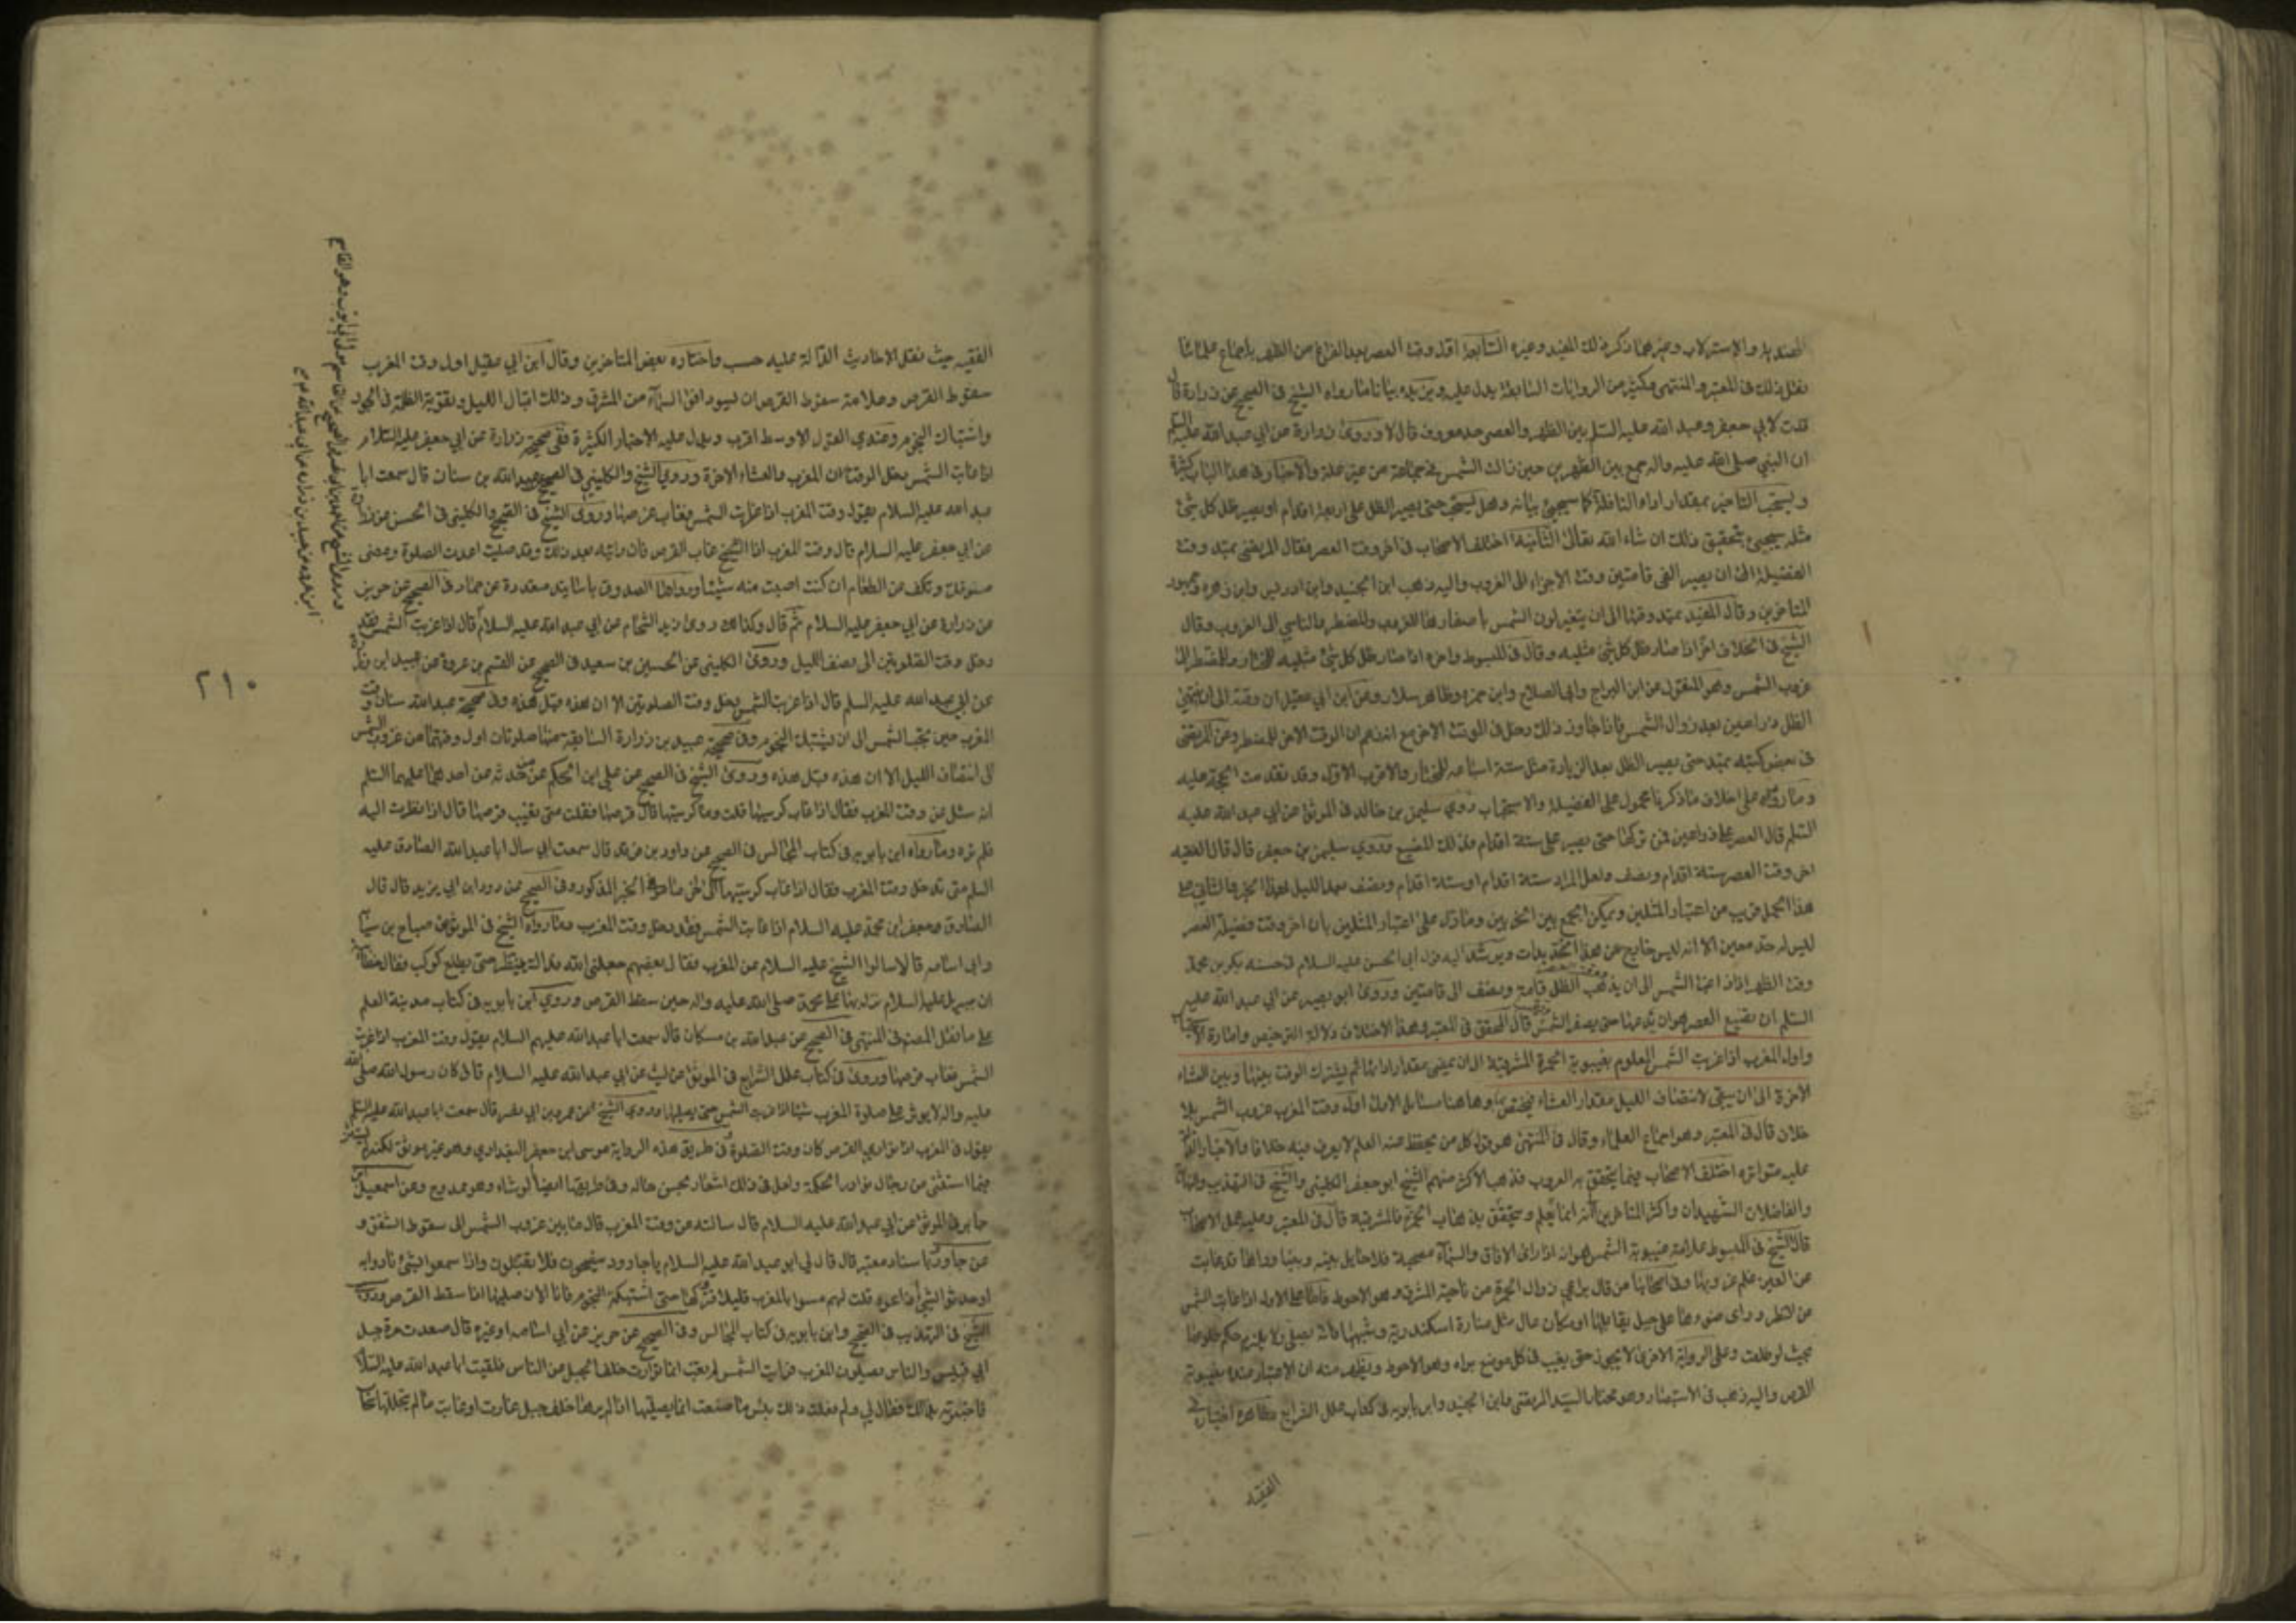 الهندية والاسترلاب وغيرهما ذكر ذلك المفيد وغيره السابعة اول وقت العصر بعد الفراغ من الظهر باجماع علمائنا
نقل ذلك في المعتبر والمنتهى وكثير من الروايات السابقة يدل عليه ويزيده بيانا ما رواه الشيخ في الصحيح عن زرارة قال
قلت لابي جعفر وعبد الله عليه السلم بين الظهر والعصر حد معروف قال لا وروى زرارة عن ابي عبد الله عليه السلم
ان النبي صلى الله عليه واله جمع بين الظهرين حين زالت الشمس في جماعة من غير علة والاخبار في هذا الباب كثيرة
ويستحب التاخير بمقدار اداء النافلة كما سيجيئ بيانه وهل يستحب حتى يصير الظل على اربعة اقدام او يصير ظل كل شئ
مثله سيجيئ تحقيق ذلك ان شاء الله تعالى الثامنة اختلف الاصحاب في اخر وقت العصر فقال المرتضى يمتد وقت
الفضيلة الى ان يصير الفئ قامتين وقت الاجزاء الى الغروب واليه ذهب ابن الجنيد وابن ادريس وابن زهرة وجمهور
المتاخرين وقال المفيد يمتد وقتها الى ان يتغير لون الشمس باصفرارها للغروب وللمضطر والناسي الى الغروب وقال
الشيخ في الخلاف اخره اذا صار ظل كل شئ مثليه وقال في المبسوط واخره اذا صار ظل كل شئ مثليه للمختار وللمضطر الى
غروب الشمس وهو المنقول عن ابن البراج وابي الصلاح وابن حمزه وظاهر سلار وعن ابن ابي عقيل ان وقته الى ان ينتهي
الظل ذراعين بعد زوال الشمس فاذا جاوز ذلك دخل في الوقت الاخر مع انه زعم ان الوقت الاخر للمضطر وعن المرتضى
في بعض كتبه يمتد حتى يصير الظل بعد الزيادة مثل ستة اسباعه للمختار والاقرب الاول وقد تقدمت الحجة عليه
وما رواه على خلاف ما ذكرنا محمول على الفضيلة والاستحباب روى سليمن بن خالد في الموثق عن ابي عبد الله عليه
السلم قال العصر على ذراعين فمن تركها حتى يصير على ستة اقدام فذلك المضيع وروى سليمن بن جعفر قال قال الفقيه
اخر وقت العصر ستة اقدام ونصف ولعل المراد ستة اقدام او ستة اقدام ونصف
هذا الحمل قريب من اعتبار المثلين ويمكن الجمع بين الخبرين وما دل على اعتبار المثلين بان اخر وقت فضيلة العصر
ليس له حد معين الا انه ليس خارج عن هذا التحديدات ويرشد اليه قول ابي الحسن عليه السلام في حسنة بكر بن محمد
وقت الظهر اذا زاغت الشمس الى ان يذهب الظل قامة ونصف الى قامتين وروى ابو بصير عن ابي عبد الله عليه
السلم ان تضيع العصر هو ان تدعها حتى يصفر الشمس قال المحقق في المعتبر وهذا الاختلاف دلالة الترخيص وامارة الاستحباب
واول المغرب اذا غربت الشمس المعلوم بغيبوبة الحمرة المشرقية الى ان يمضي مقدار ادائها ثم يشترك الوقت بينها وبين العشاء
الاخرة الى ان يبقى لانتصاف الليل مقدار العشاء فيختص بها وهاهنا مسائل الاولى اول وقت المغرب غروب الشمس بلا
خلاف قال في المعتبر وهو اجماع العلماء وقال في المنتهى هو قول كل من يحفظ عنه العلم لا يعرف فيه خلافا والاخبار الدالة
عليه متواترة اختلف الاصحاب فيما يتحقق به الغروب فذهب الاكثر منهم الشيخ ابو جعفر الكليني والشيخ في التهذيب والنهاية
والفاضلان والشهيدان واكثر المتاخرين انه انما يعلم ويتحقق بذهاب الحمرة المشرقية قال في المعتبر وعليه عمل الاصحاب
قال الشيخ في المبسوط علامة غيبوبة الشمس هو انه اذا راى الافاق والسماء مصحية فلا حايل بينه وبينها ورءاها قد غابت
عن العين علم غروبها وفي اصحابنا من قال يراعى زوال الحمرة من ناحية المشرق وهو الاحوط فاما على الاول اذا غابت الشمس
من النظر وراى ضوءها على جبل يقابلها او مكان عال مثل منارة اسكندرية وشبهها فانه يصلى ولا يلزم حكم طلوعها
بحيث لو طلعت وعلى الرواية الاخرى لا يجوز حتى يغيب في كل موضع يراه وهو الاحوط ويظهر منه ان الاعتبار عنده بغيبوبة
القرص واليه ذهب في الاستبصار وهو مختار السيد المرتضى وابن الجنيد وابن بابويه في كتاب علل الشرايع وظاهره اختياره في
الفقيه
الفقيه حيث نقل الاحاديث الدالة عليه حسب واختاره بعض المتاخرين وقال ابن ابي عقيل اول وقت المغرب
سقوط القرص وعلامة سقوط القرص ان يسود افق السماء من المشرق وذلك اقبال الليل وتقوية الظلمة في الجو
واشتباك النجوم وعندي القول الاوسط اقرب ويدل عليه الاخبار الكثيرة ففي صحيحة زرارة عن ابي جعفر عليه السلام
اذا غابت الشمس دخل الوقتان المغرب والعشاء الاخرة وروى الشيخ والكليني في الصحيح عن عبد الله بن سنان قال سمعت ابا
عبد الله عليه السلام يقول وقت المغرب اذا غربت الشمس فغاب قرصها وروى الشيخ في الصحيح والكليني في الحسن عن زرارة
عن ابي جعفر عليه السلام قال وقت المغرب اذا غاب القرص فان رايته بعد ذلك وقد صليت اعدت الصلوة ومضى
صومك وتكف عن الطعام ان كنت اصبت منه شيئا ورواها الصدوق باسانيد متعددة عن حماد في الصحيح عن حريز
عن زرارة عن ابي جعفر عليه السلام ثم قال وكذلك روى زيد الشحام عن ابي عبد الله عليه السلام قال اذا غربت الشمس فقد
دخل وقت الصلوتين الى نصف الليل وروى الكليني عن الحسين بن سعيد في الصحيح عن القسم بن عروة عن عبيد ابن زرارة
عن ابي عبد الله عليه السلم قال اذا غربت الشمس دخل وقت الصلوتين الا ان هذه قبل هذه وفي صحيحة عبد الله سنان وقت
المغرب حين تجب الشمس الى ان يشتبك النجوم وفي صحيحة عبيد بن زرارة السابقة منها صلوتان اول وقتهما من غروب الشمس
الى انتصاف الليل الا ان هذه قبل هذه وروى الشيخ في الصحيح عن علي ابن الحكم عمن حدثه عن احدهما عليهما السلم
انه سئل عن وقت المغرب فقال اذا غاب كرسيها قلت وما كرسيها قال قرصها فقلت متى يغيب قرصها قال اذا نظرت اليه
فلم تره وما رواه ابن بابويه في كتاب المجالس في الصحيح عن داود بن فرقد قال سمعت ابي سال ابا عبد الله الصادق عليه
السلم متى تدخل وقت المغرب فقال اذا غاب كرسيها الى اخر ما في الخبر المذكور وفي الصحيح عن داود ابن ابي يزيد قال قال
الصادق جعفر ابن محمد عليه السلام اذا غابت الشمس فقد دخل وقت المغرب وما رواه الشيخ في الموثق عن صباح بن سيابة
وابي اسامه قالا سالوا الشيخ عليه السلام عن المغرب فقال بعضهم جعلني الله فداك ننتظر حتى يطلع كوكب فقال خطابية
ان جبرئيل عليه السلام نزل بها على محمد صلى الله عليه واله حين سقط القرص وروى ابن بابويه في كتاب مدينة العلم
على ما نقل المصنف في المنتهى في الصحيح عن عبد الله بن مسكان قال سمعت ابا عبد الله عليهم السلام يقول وقت المغرب اذا غربت
الشمس فغاب قرصها وروى في كتاب علل الشرايع في الموثق عن ليث عن ابي عبد الله عليه السلام قال كان رسول الله صلى الله
عليه واله لا يوثر على صلوة المغرب شيئا اذا غربت الشمس حتى يصليها وروى الشيخ عن عمرو بن ابي نصر قال سمعت ابا عبد الله عليه السلم
يقول في المغرب اذا توارى القرص كان وقت الصلوة وفي طريق هذه الرواية موسى ابن جعفر البغدادي وهو غير موثق لكنه
فيما استثنى من رجال نوادر الحكمة ولعل في ذلك اشعار بحسن حاله وفي طريقها ايضا الوشاء وهو ممدوح وعن اسمعيل بن
جابر في الموثق عن ابي عبد الله عليه السلام قال سالته عن وقت المغرب قال ما بين غروب الشمس الى سقوط الشفق و
عن جارود باسناد معتبر قال قال لي ابو عبد الله عليه السلام يا جارود ينصحون فلا يقبلون واذا سمعوا بشئ نادوا به
او حدثوا بشئ اذاعوه قلت لهم مسوا بالمغرب قليلا فتركوها حتى اشتبكت النجوم فانا الان صليها اذا سقط القرص وروى
الشيخ في التهذيب في الصحيح وابن بابويه في كتاب المجالس وفي الصحيح عن حريز عن ابي اسامه او غيره قال صعدت مرة جبل
ابي قبيس والناس يصلون المغرب فرايت الشمس لم تغب انما توارت خلف الجبل عن الناس فلقيت ابا عبد الله عليه السلام
فاخبرته بذلك فقال لي ولم فعلت ذلك بئس ما صنعت انما يصليها اذا لم يرها خلف جبل غارت او غابت ما لم يتجللها سحاب
٢١٠